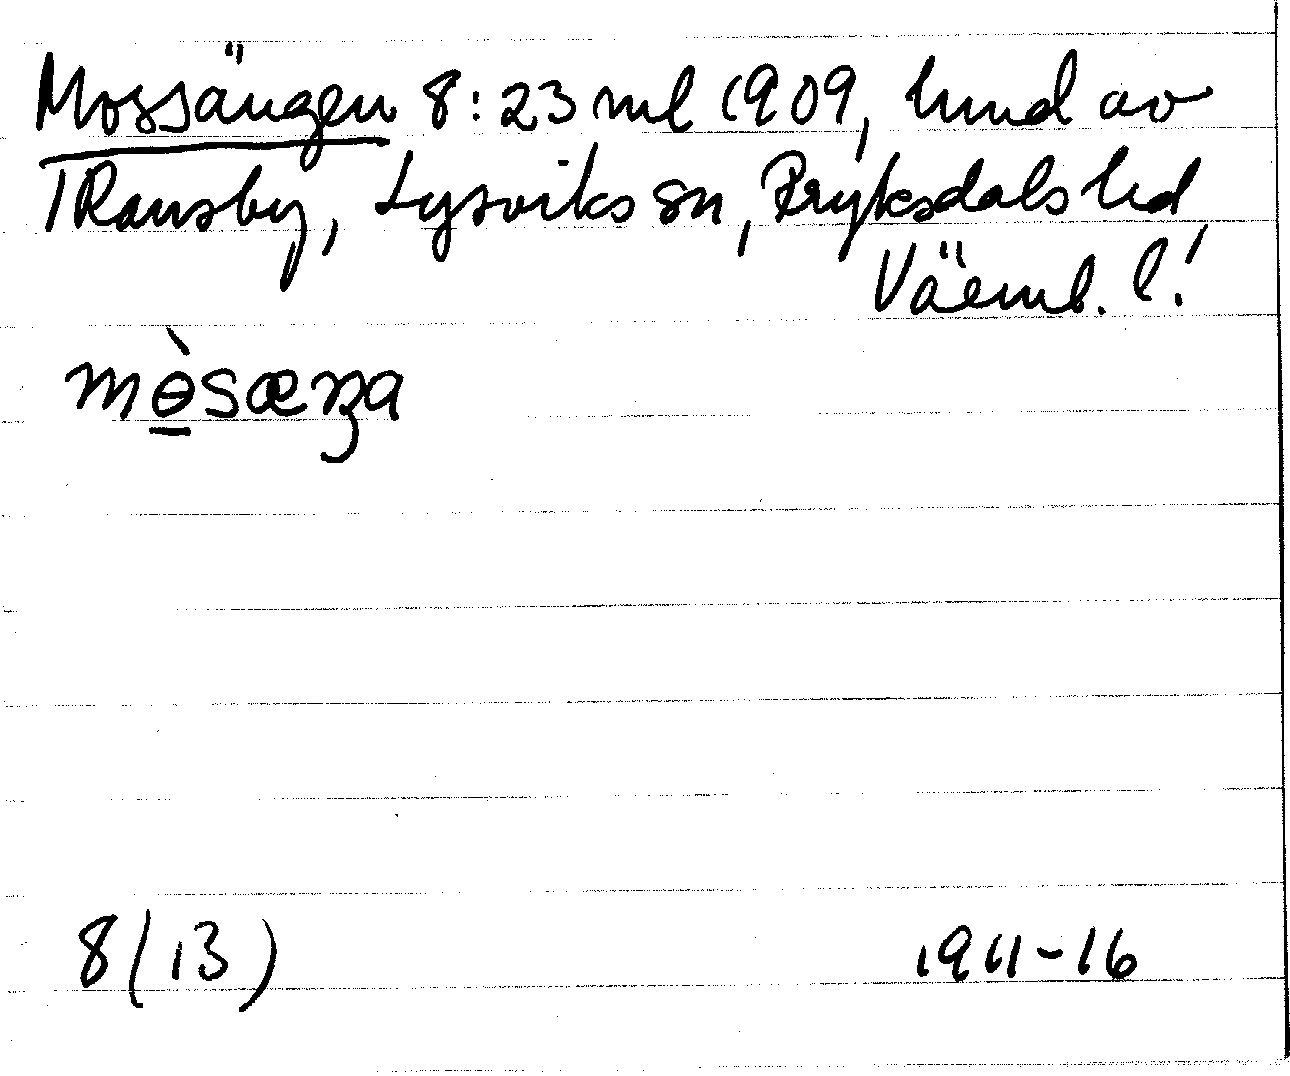 Mossängen 8:23 ml 1909, hmd av
Ransby, Lysviks sn, Fryksdals hd
Värml. l.!
mɵ̀sæŋa
8(13)
1911-16